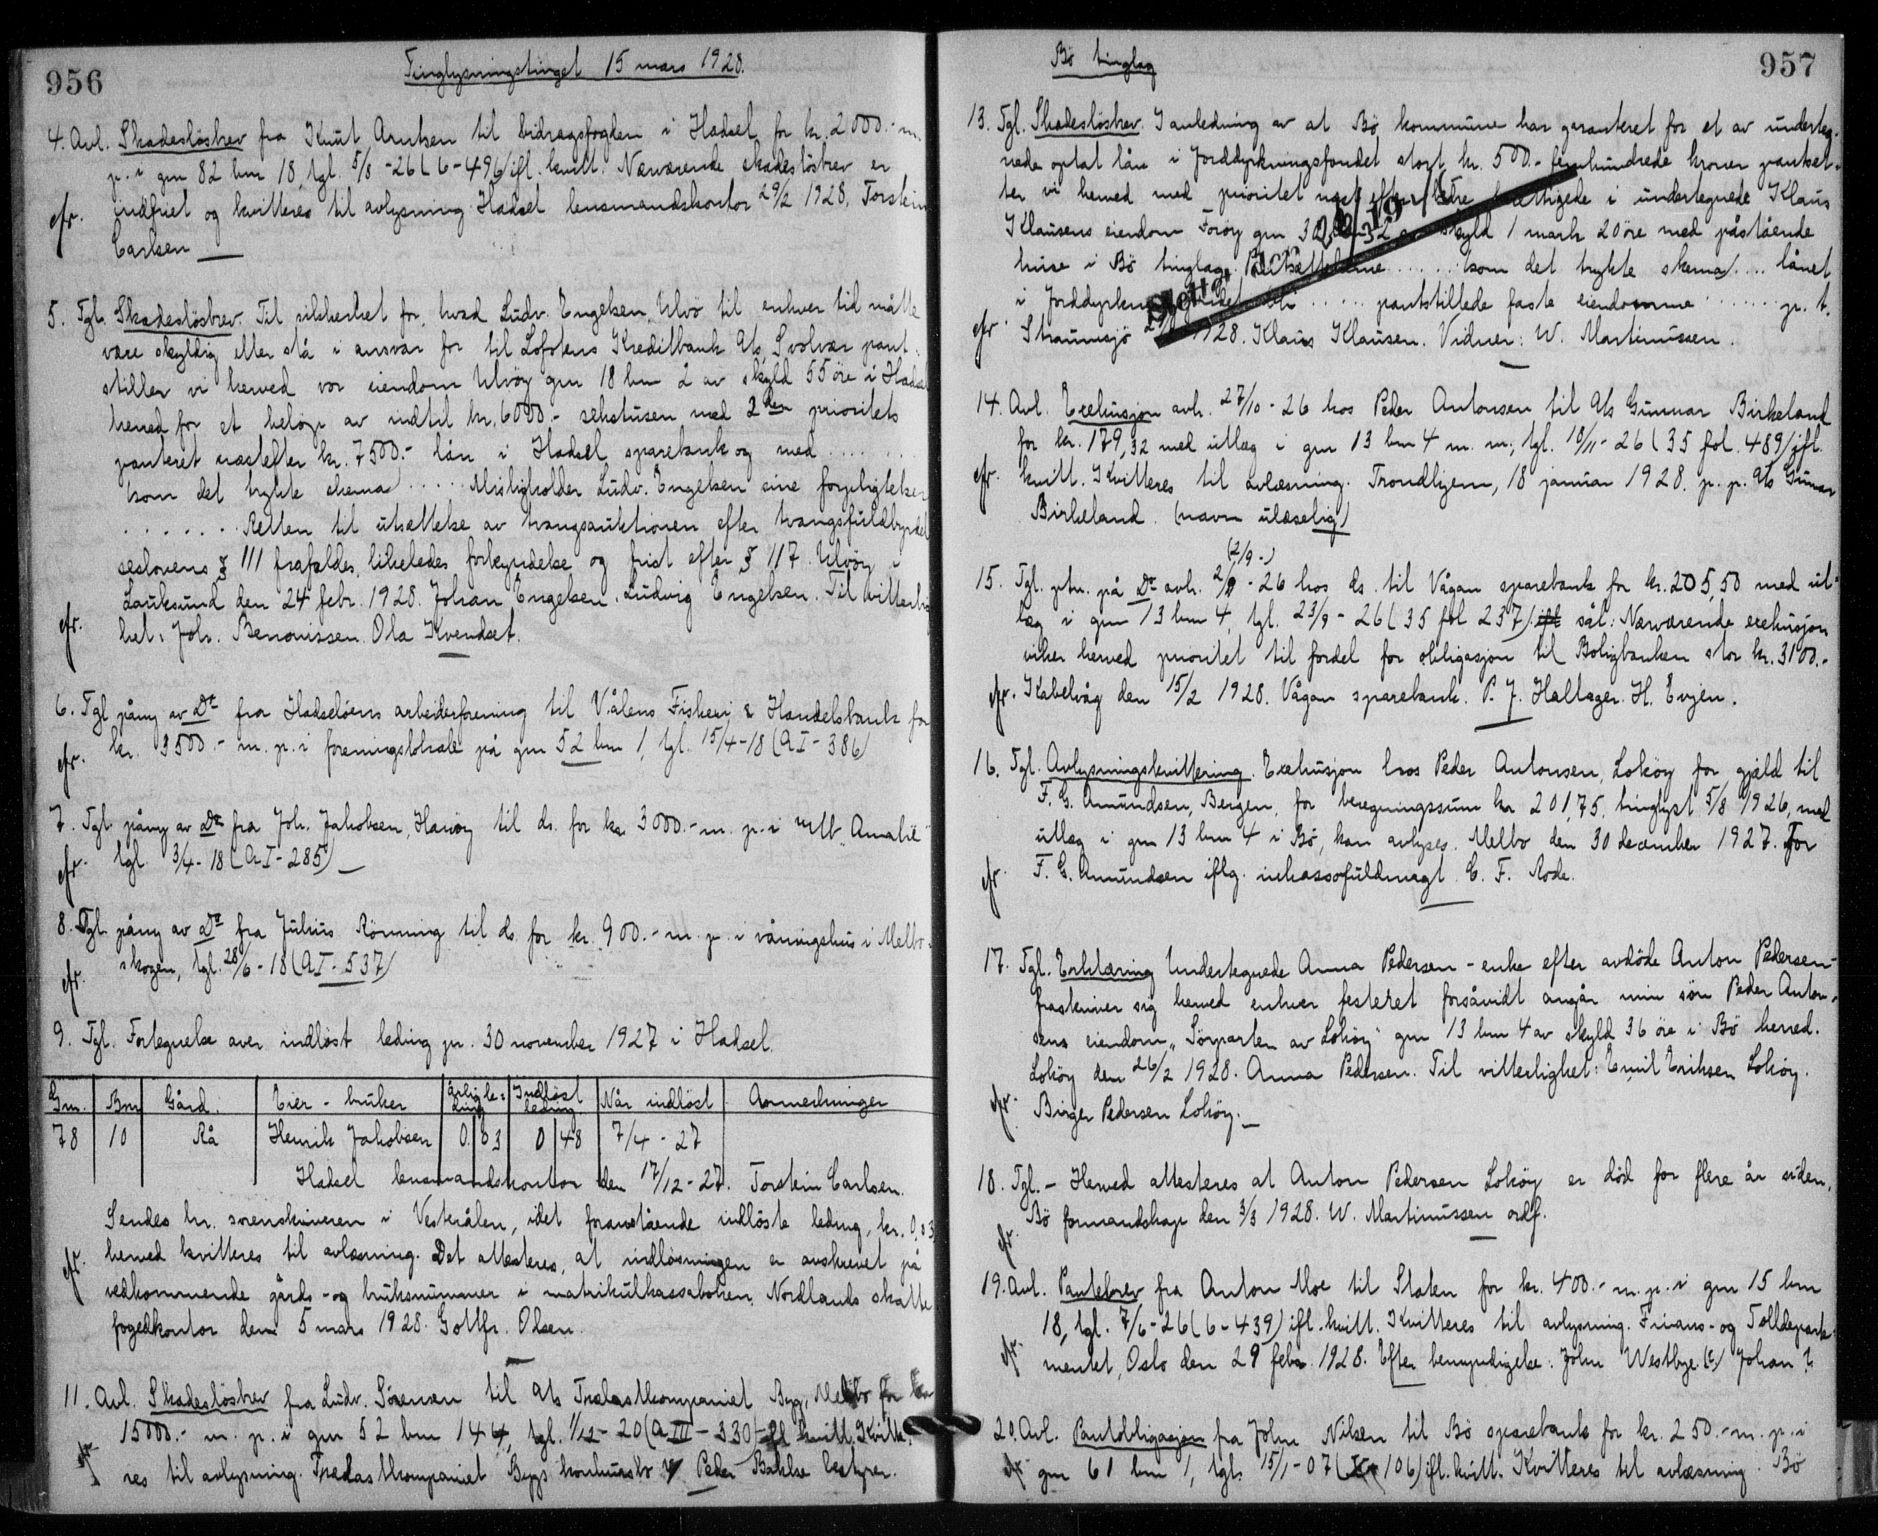 956
Tinglysningstinget 15 mars 1928.
4. Avl. Skadesløsbrev fra Knut Arntzen til bidragsfogden i Hadsel for kr. 2000.- m.
p. i gm 82 bm 18, tgl. 5/8 -26 (6-496) ifl. kvitt. Nærværende skadesløsbrev er
indfriet og kvitteres til avlysning. Hadsel lensmandskontor 29/2 1928, Torstein
Carlsen
5. Tgl. Skadesløsbrev. Til sikkerhet for, hvad Ludv. Engelsen, Ulvø til enhver tid måtte
være skyldig eller stå i ansvar for til Lofotens Kreditbank A/s, Svolvær pant-
stiller vi herved vor eiendom Ulvöy gm 18 bm 2 av skyld 55 öre i Hadsel
herred for et beløp av indtil kr. 6000.- sekstusen med 2den prioritets
panteret næstefter kr. 7500.- lån i Hadsel sparebank og med .........
(som det trykte skema) ..... Misligholder Ludv. Engelsen sine forpligtelser
....... Retten til utsættelse av tvangsauktionen efter tvangsfuldbyrdel-
seslovens § 111 frafaldes, likeledes forkyndelse og frist efter § 117. Ulvöy i
Lauksund den 24 febr. 1928. Johan Engelsen. Ludvig Engelsen. Til vitterlig-
het: Joh. Benonissen. Ola Kvendset.
6. Tgl. påny av Do fra Hadseløens arbeiderforening til V.ålens Fiskeri & Handelsbank for
kr. 3500.- m. p. i foreningslokale på gm 52 bm 1, tgl. 15/4-18 (A I-386)
7. Tgl. påny av Do fra Joh. Jakobsen, Hanøy til ds. for kr. 3000.- m. p. i M/b "Amalie"
tgl. 3/4-18 (A I-285)
8. Tgl. påny av Do fra Julius Rönning til ds. for kr. 900.- m. p. i våningshus i Melbo-
skogen, tgl. 28/6-18 (A I-537)
9. Tgl. Fortegnelse over indløst leding pr. 30 november 1927 i Hadsel.
Gm. Bm. Gård. Eier - bruker Årlig leding Indløst leding Når indløst Anmerkninger
78 10 Rå Henrik Jakobsen 0.03 0 48 7/4-27
Hadsel lensmandskontor den 17/12-27. Torstein Carlsen.
Sendes hr. sorenskriveren i Vesterålen, idet foranstående indløste leding, kr. 0,03
herved kvitteres til avlæsning. Det attesteres, at indløsningen er avskrevet på
vedkommende gårds- og bruksnummer i matrikulkassaboken. Nordlands skatte-
fogedkontor den 5 mars 1928. Gottfr. Olsen.
11. Avl. Skadesløsbrev fra Ludv. Sörensen til A/s Trælastkompaniet Byg, Melbo for kr.
15000.- m. p. i gm 52 bm 144, tgl. 1/12-20 (A III-330) ifl. kvitt. Kvitte-
res til avlysning. Trælastkompaniet Bygs konkursbo Peder Bakke bestyrer.
957
Bø tinglag
13. Tgl. Skadesløsbrev. I anledning av at Bø kommune har garanteret for et av underteg-
nede optat lån i Jorddyrkningsfondet stort kr. 500.- femhundrede kroner pantset-
ter vi herved med prioritet næst efter ældre berettigede i undertegnede Klaus
Klausens eiendom Foröy gm 30 skyld 1 mark 20 öre med påstående
huse i Bø tinglag. Pantsættelserne ...... (som det trykte skema) .... lånet
i Jorddyrkningsfondet ..... pantstillede faste eiendomme ....... p. t.
Straumsjö 1928. Klaus Klausen. Vidner: W. Martinussen.
Slettet
14. Avl. Exekusjon avh. 27/10-26 hos Peder Antonsen til A/s Gunnar Birkeland
for kr. 179,32 med utlæg i gm 13 bm 4 m. m., tgl. 10/11-26 (35 fol. 489) ifl.
kvitt. Kvitteres til avlæsning. Trondhjem, 18 januar 1928. p. p. A/s Gunnar
Birkeland. (navn ulæselig)
(2/9-)
15. Tgl. ptn. på Do avh. 2/9-26 hos ds. til Vågan sparebank for kr. 205,50 med ut-
læg i gm 13 bm 4, tgl. 23/9-26 (35 fol 237) sål: Nærværende exekusjon
viker herved prioritet til fordel for obligasjon til Boligbanken stor kr. 3100.-
Kabelvåg den 15/2 1928. Vågan sparebank. P. J. Hallager. H. Evjen.
16. Tgl. Avlysningskvittering. Exekusjon hos Peder Antonsen, Loköy for gjæld til
F. G. Amundsen, Bergen, for beregningssum kr 201,75, tinglyst 5/8 1926, med
utlæg i gm 13 bm 4 i Bø, kan avlyses. Melbo den 30 december 1927. For
F. G. Amundsen iflg. inkassofuldmagt. C. F. Rode.
17. Tgl. Erklæring. Undertegnede Anna Pedersen - enke efter avdöde Anton Pedersen -
frasknriver sig herved enhver festeret forsåvidt angår min sön Peder Anton-
sens eiendom "Sörparten av Loköy" gm 13 bm 4 av skyld 36 öre i Bø herred.
Loköy den 26/2 1928. Anna Pedersen. Til vitterlighet: Emil Eriksen Loköy.
Birger Pedersen Loköy.
18. Tgl. - Herved attesteres at Anton Pedersen Loköy er död for flere år siden.
Bø formandskap den 3/3 1928. W. Martinussen ordf.
19. Avl. Pantebrev fra Anton Moe til Staten for kr. 400.- m. p. i gm 15 bm
18, tgl. 7/6-26 (6-439) ifl. kvitt. Kvitteres til avlysning. Finans- og Tolldeparte-
mentet, Oslo den 29 febr. 1928. Efter bemyndigelse: John Westbye. Johan
20. Avl. Pantobligasjon fra John Nilsen til Bø sparebank for kr. 250.- m. p. i
gm 61 bm 1, tgl. 15/1-07 ( 106) ifl. kvitt. Kvitteres til avlæsning. Bø